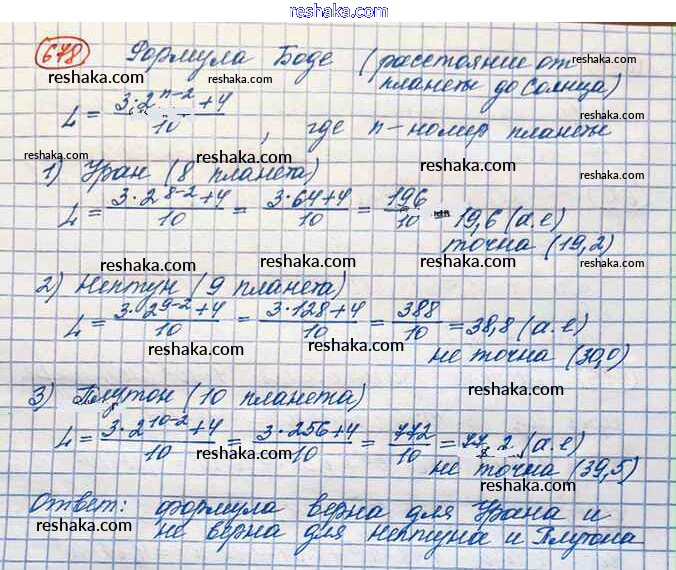 www.reshaka.com
678 Формула Боде (расстояние от
reshaka.com планеты до Солнца) reshaka.com
L = (3·2^(n-2)+4)/10, где n - номер планеты
reshaka.com reshaka.com reshaka.com
1) Уран (8 планета)
L = (3·2^(8-2)+4)/10 = (3·64+4)/10 = 196/10 = 19,6 (а.е)
reshaka.com reshaka.com reshaka.com
точна (19,2)
reshaka.com reshaka.com
2) Нептун (9 планета)
L = (3·2^(9-2)+4)/10 = (3·128+4)/10 = 388/10 = 38,8 (а.е)
reshaka.com reshaka.com
не точна (30,0)
reshaka.com reshaka.com
3) Плутон (10 планета)
L = (3·2^(10-2)+4)/10 = (3·256+4)/10 = 772/10 = 77,2 (а.е)
reshaka.com reshaka.com reshaka.com
не точна (39,5)
Ответ: формула верна для Урана и
reshaka.com reshaka.com reshaka.com
не верна для Нептуна и Плутона
www.reshaka.com